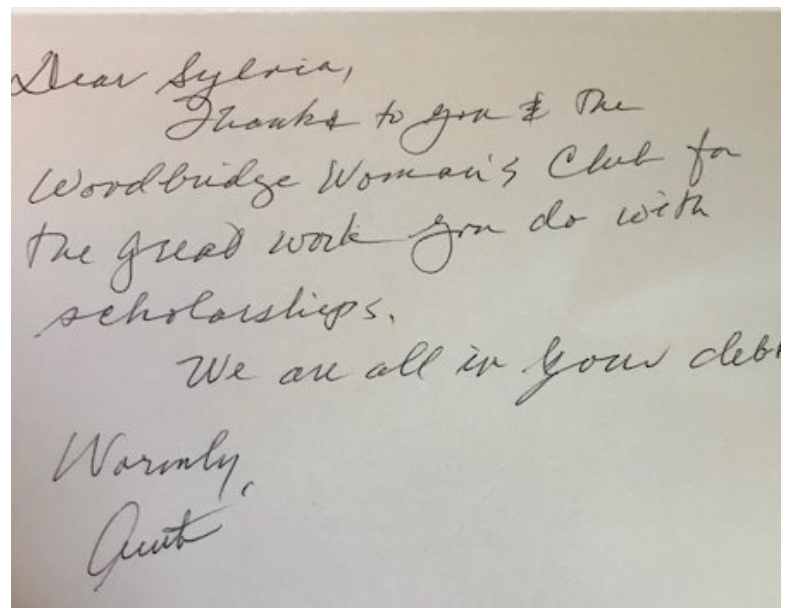 Dear Sylvia,
Thanks to you & the
Woodbridge Woman's Club for
the great work you do with
scholarships.
We are all in your debt
Warmly,